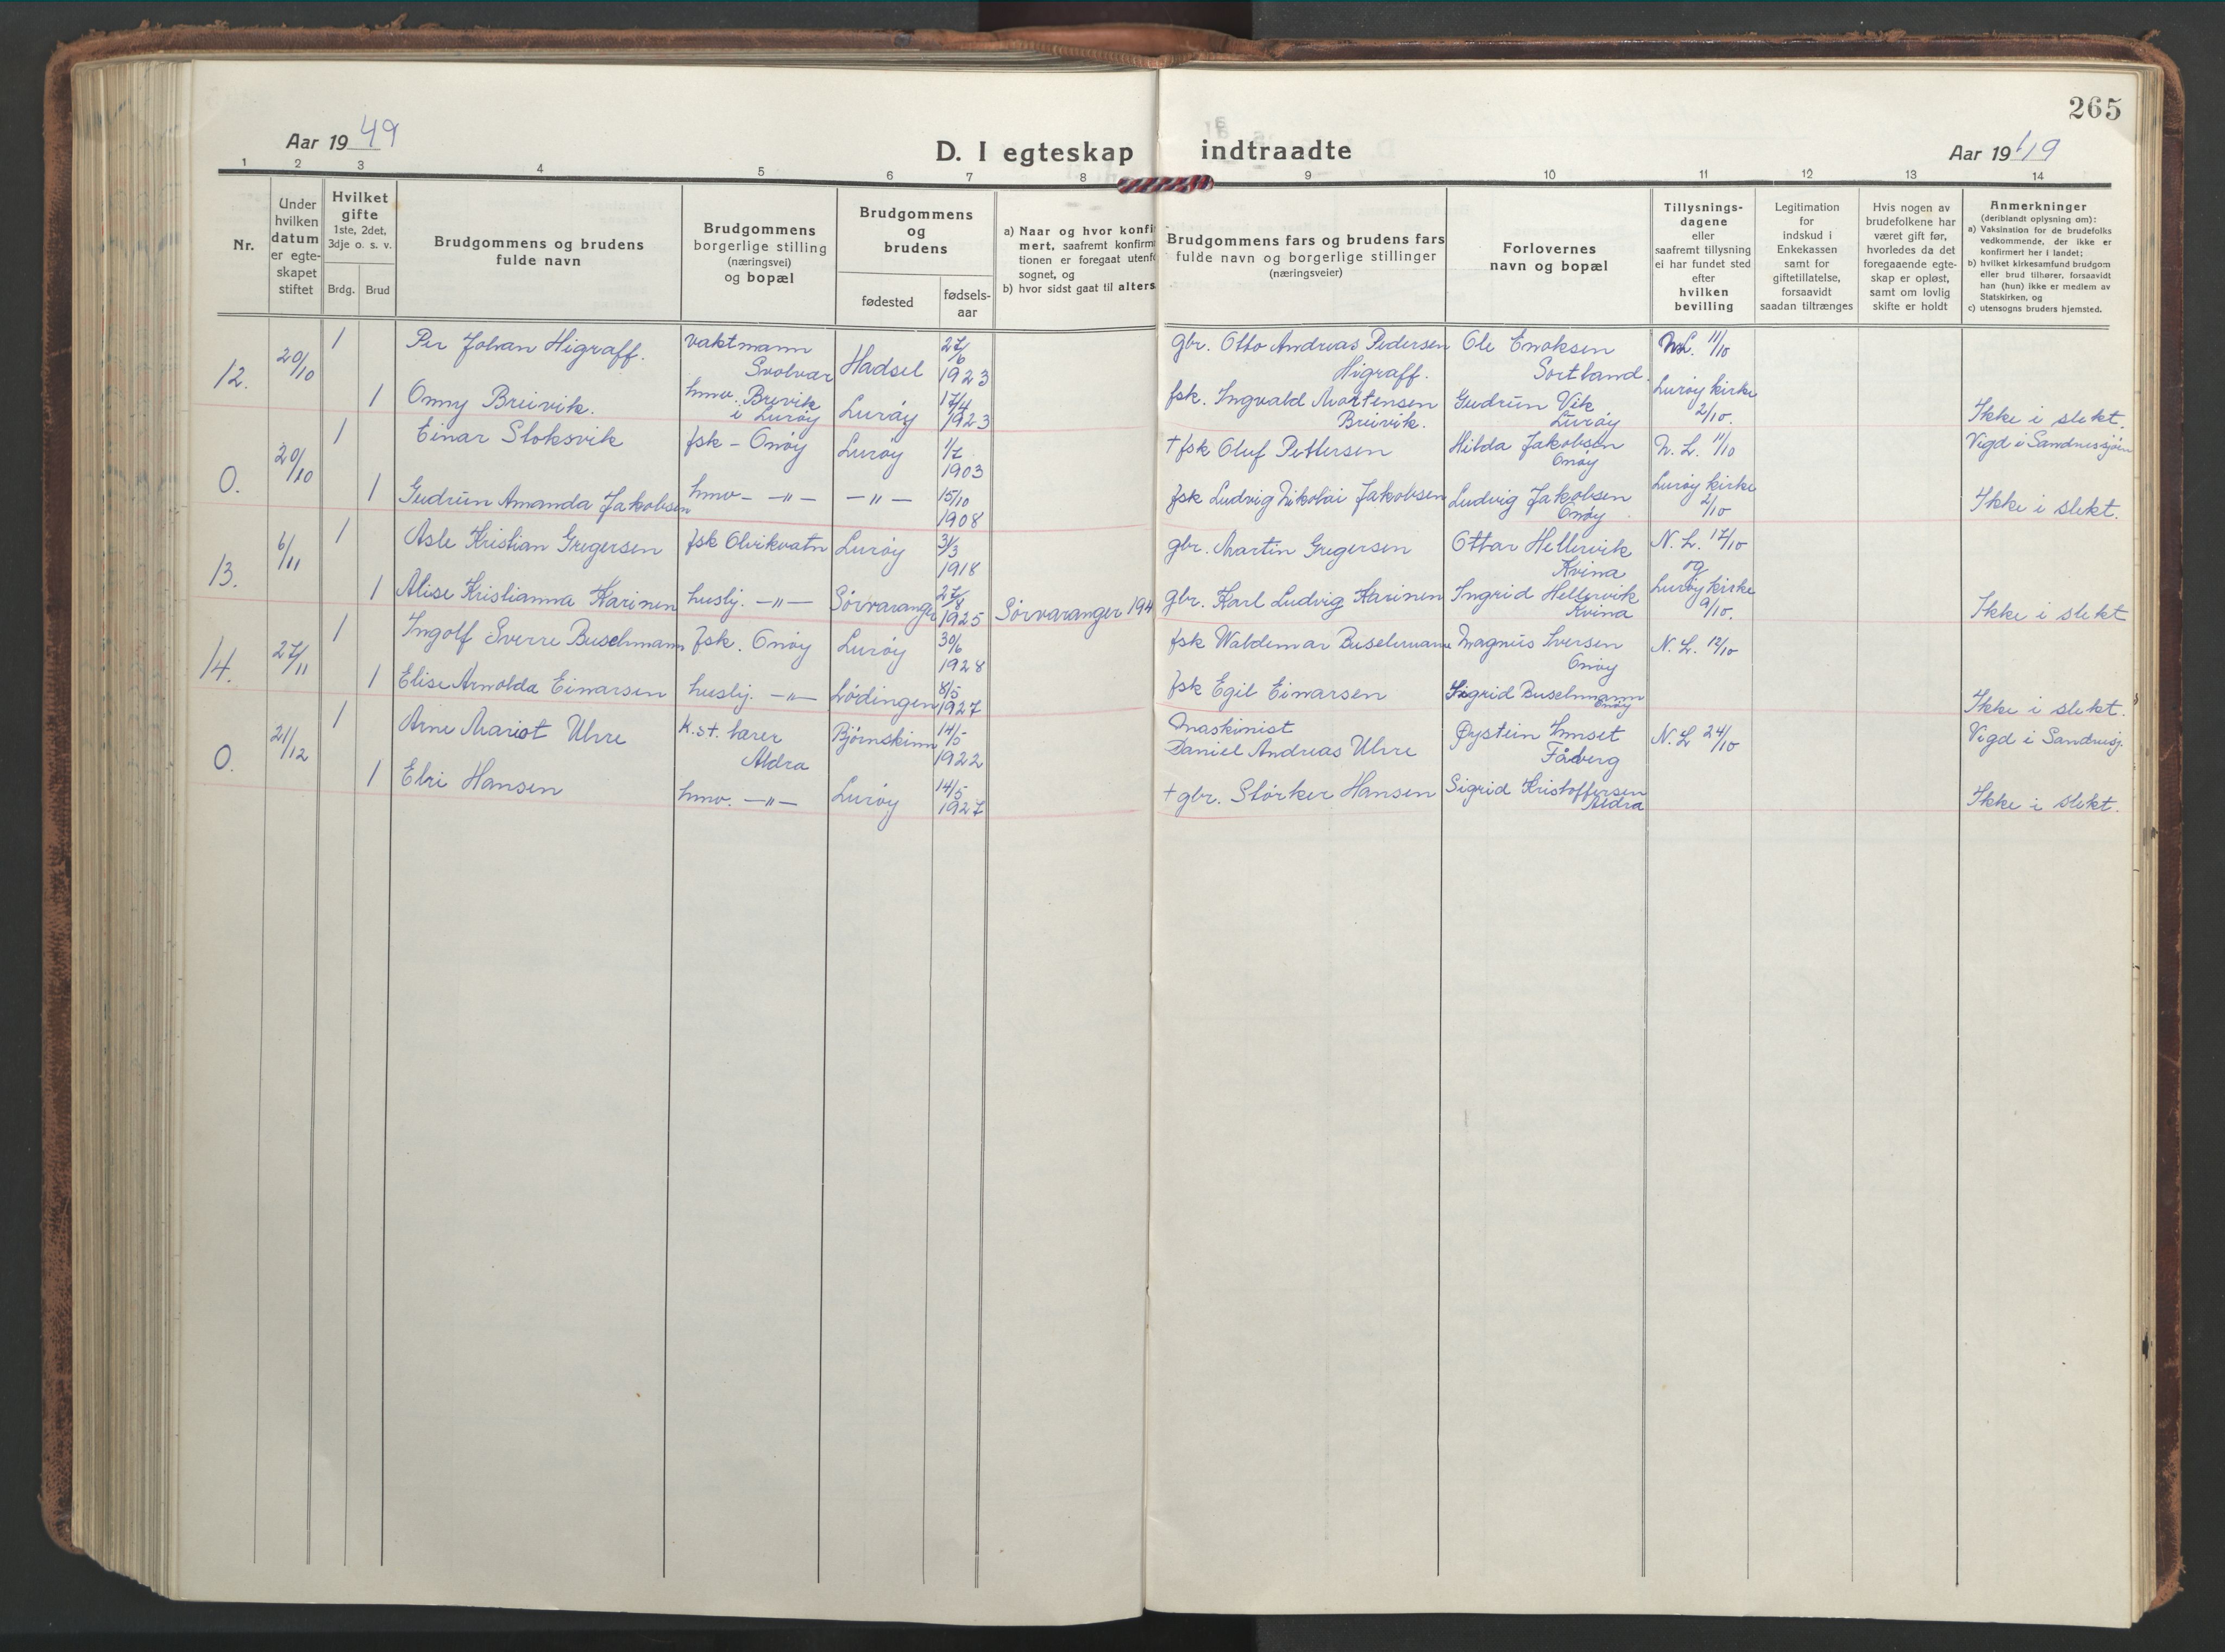 265
Aar 1949
D. I egteskap indtraadte
Aar 1949
1 2 3 4 5 6 7 8 9 10 11 12 13 14
Nr.
Under
hvilken
datum
er egte-
skapet
stiftet
Hvilket
gifte
1ste, 2det,
3dje o. s. v.
Brdg. Brud
Brudgommens og brudens
fulde navn
Brudgommens
borgerlige stilling
(næringsvei)
og bopæl
Brudgommens
og
brudens
fødested
fødsels-
aar
a) Naar og hvor konfi
mert, saafremt konfirm
tionen er foregaat utenf
sognet, og
b) hvor sidst gaat til alters
Brudgommens fars og brudens fars
fulde navn og borgerlige stillinger
(næringsveier)
Forlovernes
navn og bopæl
Tillysnings-
dagene
eller
saafremt tillysning
ei har fundet sted
efter
hvilken
bevilling
Legitimation
for
indskud i
Enkekassen
samt for
giftetillatelse,
forsaavidt
saadan tiltrænges
Hvis nogen av
brudefolkene har
været gift før,
hvorledes da det
foregaaende egte-
skap er opløst,
samt om lovlig
skifte er holdt
Anmerkninger
(deriblandt oplysning om):
a) Vaksination for de brudefolks
vedkommende, der ikke er
konfirmert her i landet;
b) hvilket kirkesamfund brudgom
eller brud tilhører, forsaavidt
han (hun) ikke er medlem av
Statskirken, og
c) utensogns bruders hjemsted.
12. 20/10
1 Per Johan Higraff. vaktmann
Svolvær Hadsel 27/6
1923 gbr. Otto Andreas Pedersen
Higraff. Ole Enoksen
Sortland. N.L. 11/10
1 Onny Breivik. hmv. Brevik
i Lurøy Lurøy 17/4
1923 fsk. Ingvald Mortensen
Breivik. Gudrun Vik
Lurøy Lurøy kirke
2/10. Ikke i slekt.
0. 20/10
1 Einar Stoksvik fsk - Onøy Lurøy 1/7
1903 † fsk Oluf Pettersen Hilda Jakobsen
Onøy N. L. 11/10 Vigd i Sandnessjøen
1 Gudrun Amanda Jakobsen hmv - -"- -"- 15/10
1908 fsk Ludvig Nikolai Jakobsen Ludvig Jakobsen
Onøy Lurøy kirke
2/10 Ikke i slekt.
13. 6/11
1 Asle Kristian Gregersen fsk Olvikvatn Lurøy 31/3
1918 gbr. Martin Gregersen Ottar Hellervik
Kvina N. L. 17/10
og
1 Alise Kristianna Karinen husbj. -"- Sørvaranger 27/8
1925 Sørvaranger 194 gbr. Karl Ludvig Karinen Ingrid Hellervik
Kvina Lurøy kirke
9/10. Ikke i slekt
14. 27/11
1 Ingolf Sverre Buschmann fsk. Onøy Lurøy 30/6
1928 fsk Waldemar Buschmann Magnus Iversen
Onøy N. L. 12/10
1 Elise Arnolda Einarsen husbj. -"- Lødingen 8/5
1927 fsk Egil Einarsen Sigrid Buschmann
Onøy Ikke i slekt.
0. 21/12
1 Arne Mariot Uhre k.st. lærer
Aldra Bjørnskinn 14/5
1922 Maskinist
Daniel Andreas Uhre Øystein Imset
Fåberg N. L 24/10 Vigd i Sandnesj.
1 Elri Hansen hmv. -"- Lurøy 14/5
1927 † gbr. Størker Hansen Sigrid Kristoffersen
Aldra Ikke i slekt.